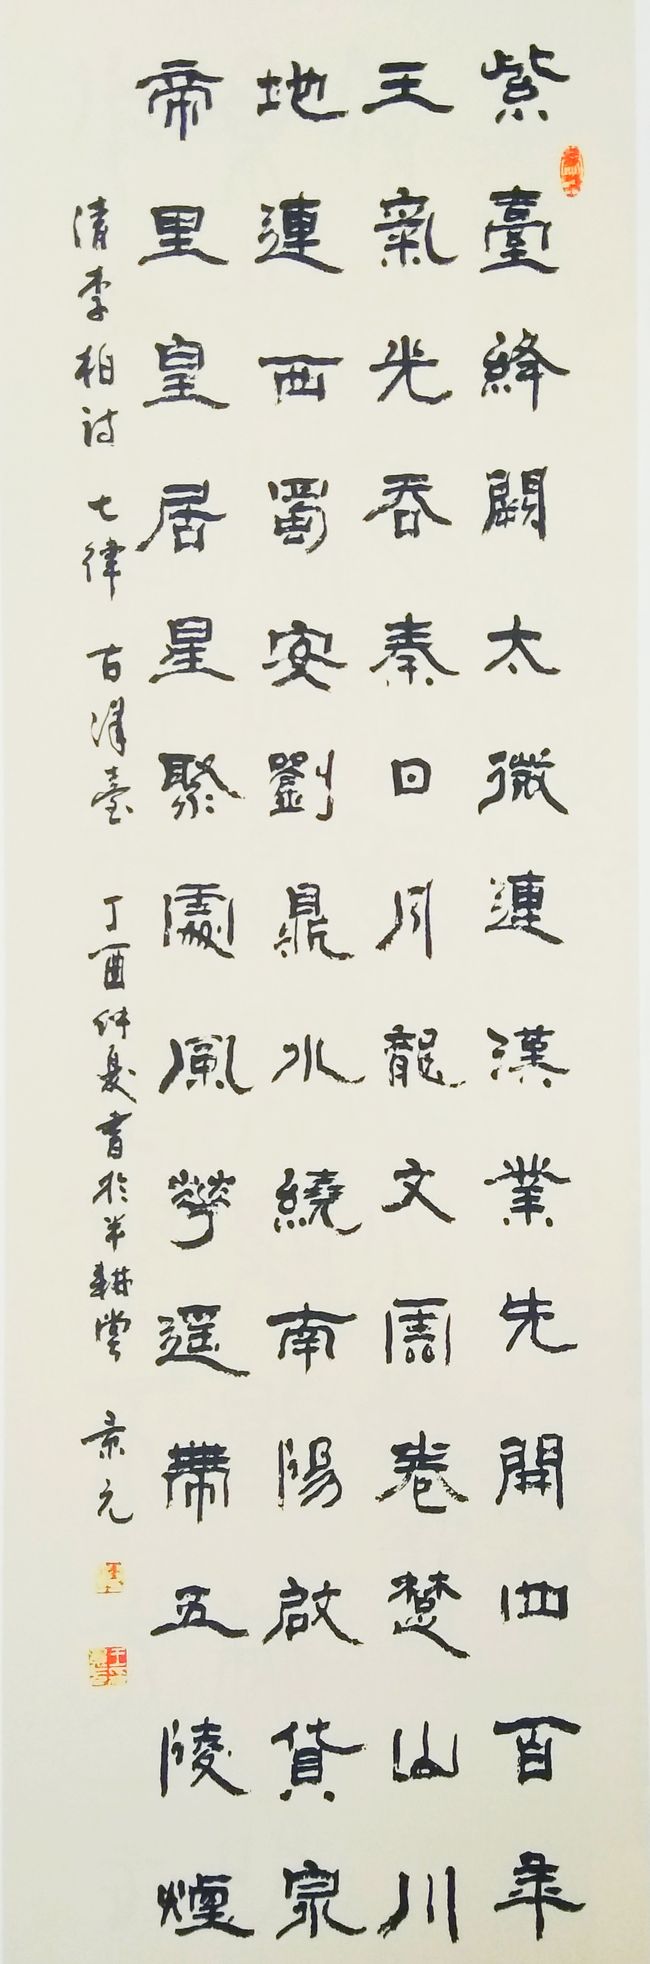 紫臺絳闕太微連漢業先開四百年
王氣光吞秦日月龍文圖卷楚山川
地連西蜀安劉鼎水繞南陽啟貨泉
帝里皇居星聚處風華遥帶五陵煙
清李柏詩 七律 古漢臺 丁酉仲夏書於半耕堂 景元